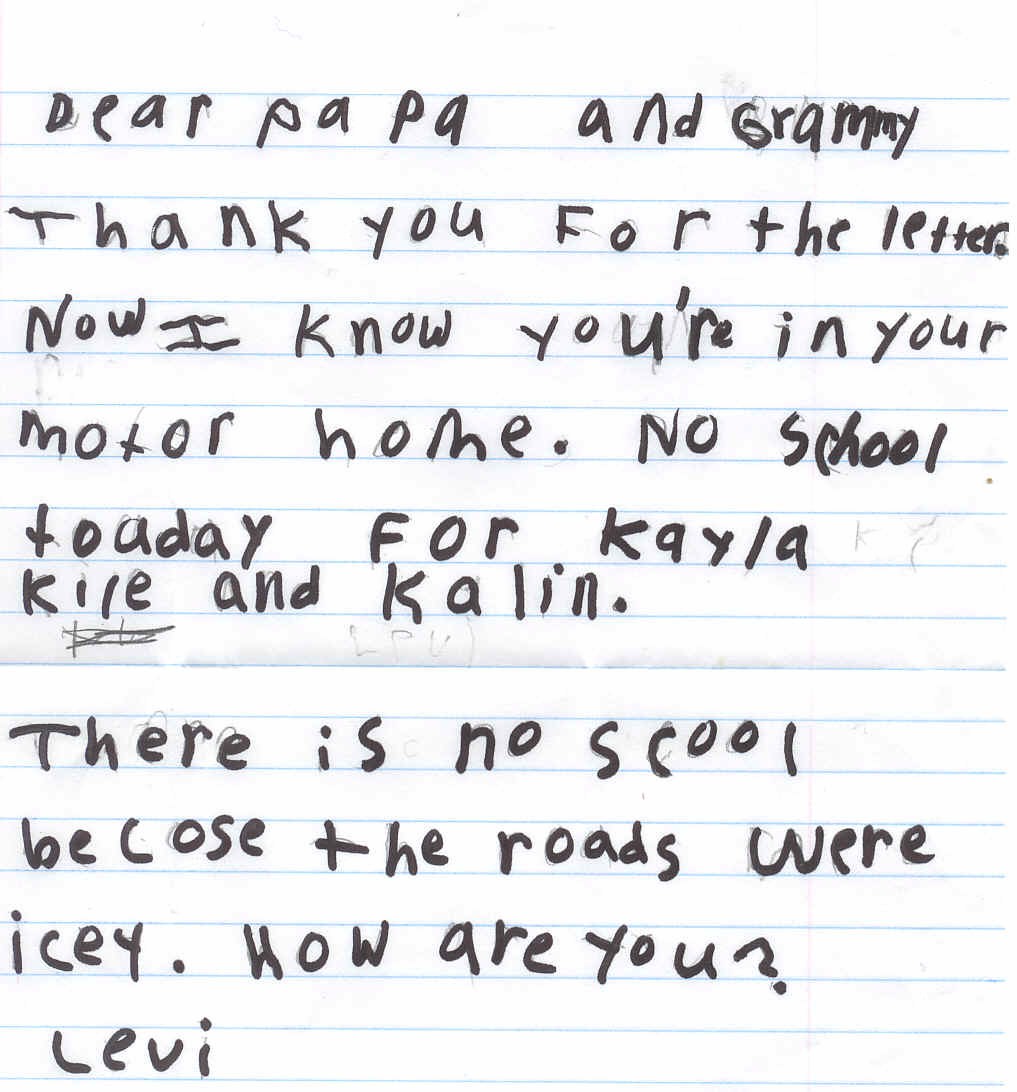 Dear papa and Grammy
Thank you For the letter.
Now I know you're in your
motor home. No school
toaday For kayla
kile and Kalin.
There is no scool
becose the roads were
icey. How are you?
Levi